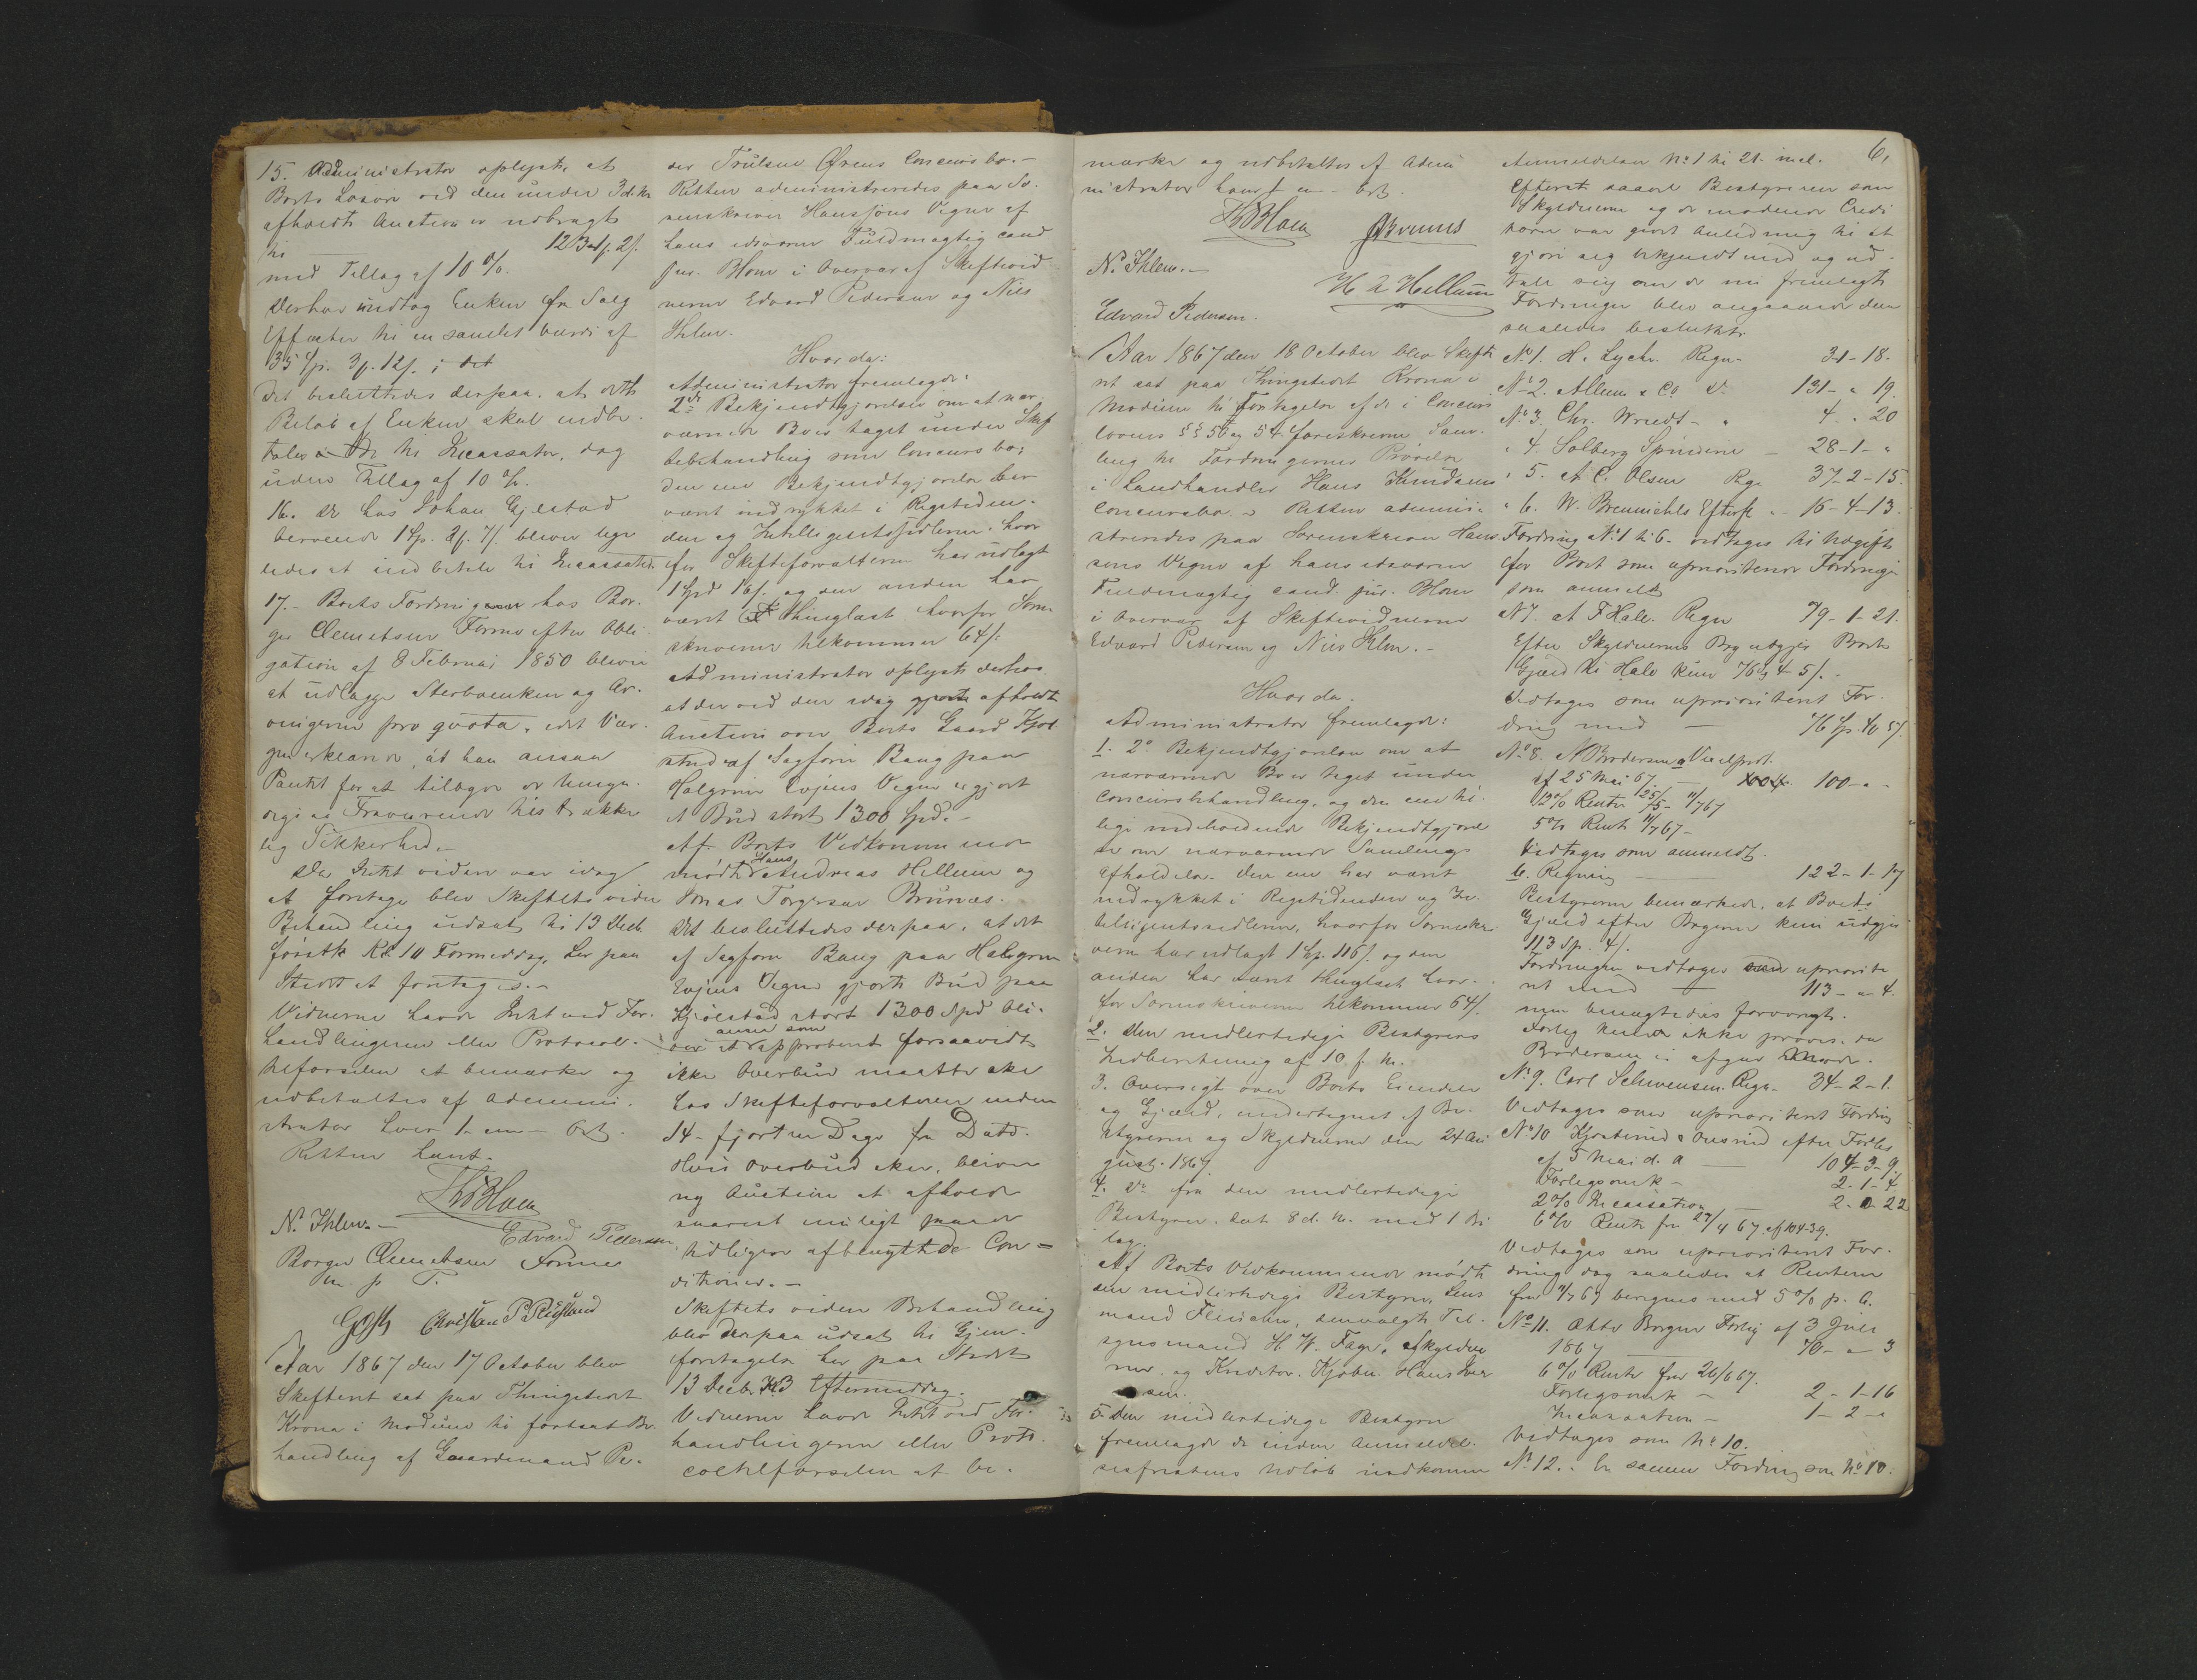 15. Administrator oplyste, at
Boets Løsøre ved den under 3 d. M.
afholdte Auction er udbragt
til
med Tillag af 10 %.
Derhos indtog Enken fra Salg
Effecter til en samlet Værdi af
35 Sp. 3 12 ; det
Det besluttedes derpaa, at dette
Beløb af Enken skal indbe-
tales til Incassator, dog
uden Tillag af 10 %.
16. De hos Johan Gjestad
beroende 1 Sp. 2 7 bliver lige
ledes at indbetale til Incassator.
17. - Boets Fordring hos Bor-
ger Clemetsen Formo efter Obli-
gation af 8 Februar 1850 bliver
at udlægge Sterboenken og Ar-
vingerne pro qvota, idet Vær-
gen erklærede, at han ansaa
Pantet for at
lig Sikkerhed.
Da Intet videre var idag
at foretage blev Skiftets videre
Behandling udsat til 13 Decb.
førstk. Kl. 10 Formiddag, her paa
Stedet at foretages.
Vidnerne havde Intet ved For-
handlingerne eller Protocol-
tilførselen at bemærke og
udbetaltes af Admini-
strator hver 1 - en - Ort.
Retten hævet.
Th Blom
N. Ihlen. -
Edvard Pedersen
Borger Clemetsen Formo
m. p. P.
Christian P.
Aar 1867 den 17 October blev
Skifteret sat paa Thingstedet
Krona i Modum til fortsat Be-
handling af Gaardmand Pe-
der Trulsen Ørens Concursbo. -
Retten administreredes paa So-
renskriver Hanssons Vegne af
hans edsvorne Fuldmægtig cand
jur. Blom i Overvær af Skiftevid
nerne Edvard Pedersen og Niels
Ihlen.
Hvor da:
Administrator fremlagde:
2de Bekjendtgjørelser om at nær-
værende Bo er taget under Skif
tebehandling som Concursbo;
den ene Bekjendtgjørelse har
været indrykket i Rigstiden-
den og Intelligentssedlerne, hvor
for Skifteforvalteren har udlagt
1 Spd 16 og den anden har
været thinglæst hvorfor Soren
skriveren tilkommer 64
Administrator oplyste derhos
at der ved den idag afholdte
Auction over Boets Gaard Kjøl
stad af Sagfører Bang paa
Halgrim Evjus Vegne er gjort
et Bud stort 1300 Spd. -
Af Boets Vedkommende
mødte Hans Andreas Hellum og
Jonas Torgersen Brunæs.
Det besluttedes derpaa, at det
af Sagfører Bang paa Halgrim
Evjus Vegne gjorte Bud paa
Kjølstad stort 1300 Spd bli-
ver at anse som approberet forsaavidt
ikke Overbud maatte ske
hos Skifteforvalteren inden
14 - fjorten Dage fra Dato.
Hvis Overbud sker, bliver
ny Auction at afholde
snarest muligt paa de
tidligere afbenyttede Con-
ditioner. -
Skiftets videre Behandling
blev derpaa udsat til Gjen-
foretagelse her paa Stedet
13 Decb. Kl 3 Eftermiddag.
Vidnerne havde Intet ved For-
handlingerne eller Proto-
coltilførselen at be-
mærke og udbetaltes af Admi
nistrator hver 1 - en - Ort.
Th Blom
JBrunæs
N. Ihlen. -
H A Hellum
Edvard Pedersen.
6.
Aar 1867 den 18 October blev Skifte
ret sat paa Thingstedet Krona i
Modum til Foretagelse af de i Concurs
lovens §§ 50 og 54 foreskrevne Sam-
ling til Fordringernes Prøvelse
i Landhandler Hans Knudsens
Concursbo. - Retten admini-
streredes paa Sorenskriver Hans-
sens Vegne af hans edsvorne
Fuldmægtig cand. jur. Blom
i Overvær af Skiftevidnerne
Edvard Pedersen og Niels Ihlen. -
Hvor da.
Administrator fremlagde:
1. 2de Bekjendtgjørelser om at
nærværende Bo er taget under
Concursbehandling, og den ene til-
lige indeholdende Bekjendtgjørel
se om nærværende Samlings
Afholdelse. Den ene har været
indrykket i Rigstidenden og In-
telligentssedlerne, hvorfor Sorenskri-
veren har udlagt 1 Sp. 116 og den
anden har været thinglæst hvor-
for Sorenskriveren tilkommer 64
2. Den midlertidige Bestyrers
Indberetning af 10 f. M.
3. Oversigt over Boets Eiendele
og Gjæld, undertegnet af Be-
styreren og Skyldneren den 24 Au
gust 1867.
4. Do fra den midlertidige
Bestyrer, dat. 8 d. M. med 1 Bi
lag.
Af Boets Vedkommende mødte
den midlertidige Bestyrer, Lens
mand , den valgte Til-
synsmand H. W. Fager, Skyldne
ren og Kreditor, Kjøbm. Hans Iver
sen.
5. Den midlertidige Bestyrer
fremlagde de inden Anmeldel-
sesfristens Udløb indkomne
Anmeldelser No 1 til 21 incl.
Efterat saavel Bestyreren som
Skyldneren og de mødende Credi
torer var givet Anledning til at
gjøre sig bekjendt med og ud-
tale sig om de nu fremlagte
Fordringer blev angaaende dem
saaledes besluttet:
No 1. H. Lyche. Regn. 31-18-
No 2. Allum & Co Do 131- " 19.
No 3. Chr. Wriedt - " 4. " 20
" 4. Solberg Spinderi - 28-1- "
" 5. A C. Olsen Rg. 37-2-15.
" 6. W. Brennichls Efterf. " - 16-4-13
Fordring No 1 til 6. vedtages til Udgift
for Boet som uprioriterede Fordringer
som anmeldt
No 7. at F Hale. Regn 79-1-21.
Efter Skyldnerens Bog udgjør Boets
Gjæld til Hale kun 76 4 5 -
Vedtages som uprioriteret For-
dring med - 76 Sp. 4 5
No 8. A Brodersen a Vexelprot.
af 25 Mai 67. - 100- " -
12% Renter 25/5 - 11/7 67
5% Rente 11/7 67 -
Vedtages som anmeldt.
b. Regning - 122-1-17
Bestyreren bemærkede, at Boets
Gjæld efter Bøgerne kun udgjør
113 Sp. 4
Fordringen vedtages upriorite
ret med - 113 - " 4.
men benægtedes forøvrigt.
Forlig kunde ikke prøves, da
Brodersen ei afgav Møde.
No 9. Carl Schwensen. Regn. 34-2-1.
Vedtages som uprioriteret Fordring
No 10 Kjøsterud & Ousrud efter Forlig
af 5 Mai d. A - 104-3-9.
Forligsomk - 2-1-4.
2% Incassation - 2-0-22
6% Rente fra 27/4 67 af 104-3-9.
Vedtages som uprioriteret For-
dring dog saaledes at Renterne
fra 11/7 67 beregnes med 5% p. A.
No 11. Otto Borgen Forlig af 3 Juli
1867 - 70 - " - 3
6% Rente fra 26/6 67.
Forligsomk - 2-1-16
Incassation - 1-2- "
Vedtages som No 10.
No 12. - samme Fordring som No 10.